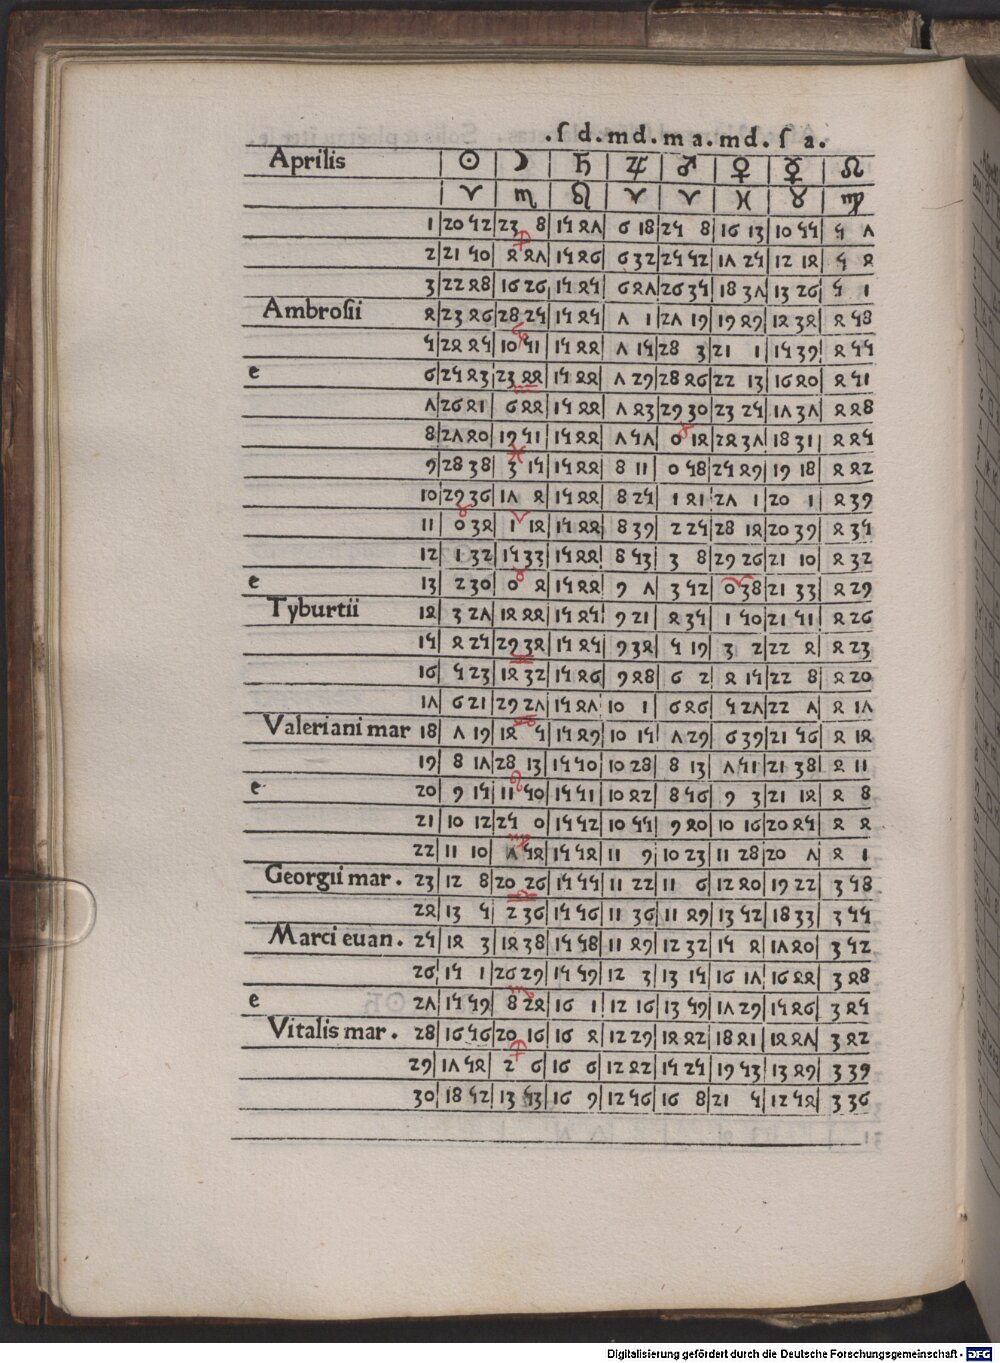 .ſ d. m d. m a. m d. ſ a.
Aprilis ☉ ☽ ♄ ♃ ♂ ♀ ☿ ☊
♈ ♏ ♌ ♈ ♈ ♓ ♉ ♍
1 20 52 23 8 15 47 6 18 25 8 16 13 10 55 5 7
♐
2 21 50 4 47 15 46 6 32 25 52 17 25 12 14 5 4
3 22 48 16 26 15 45 6 47 26 35 18 37 13 26 5 1
Ambrosii 4 23 46 28 25 15 45 7 1 27 19 19 49 14 34 4 58
♑
5 24 45 10 51 15 44 7 15 28 3 21 1 15 39 4 55
e 6 25 43 23 44 15 44 7 29 28 46 22 13 16 40 4 51
♒
7 26 41 6 44 15 44 7 43 29 30 23 25 17 37 4 48
♉
8 27 40 19 51 15 44 7 57 0 14 24 37 18 31 4 45
♓
9 28 38 3 15 15 44 8 11 0 58 25 49 19 18 4 42
10 29 36 17 4 15 44 8 25 1 41 27 1 20 1 4 39
♉ ♈
11 0 34 1 14 15 44 8 39 2 25 28 14 20 39 4 35
12 1 32 15 33 15 44 8 53 3 8 29 26 21 10 4 32
♉ ♈
e 13 2 30 0 4 15 44 9 7 3 52 0 38 21 33 4 29
Tyburtii 14 3 27 14 44 15 45 9 21 4 35 1 50 21 51 4 26
15 4 25 29 34 15 45 9 34 5 19 3 2 22 4 4 23
♊
16 5 23 14 32 15 46 9 48 6 2 4 15 22 8 4 20
17 6 21 29 27 15 47 10 1 6 46 5 27 22 7 4 17
♋
Valeriani mar 18 7 19 14 5 15 49 10 15 7 29 6 39 21 56 4 14
19 8 17 28 13 15 50 10 28 8 13 7 51 21 38 4 11
♌
e 20 9 15 11 50 15 51 10 42 8 56 9 3 21 14 4 8
21 10 12 25 0 15 52 10 55 9 40 10 16 20 45 4 4
♍
22 11 10 7 54 15 54 11 9 10 23 11 28 20 7 4 1
Georgii mar. 23 12 8 20 26 15 55 11 22 11 6 12 40 19 22 3 58
♎
24 13 5 2 36 15 56 11 36 11 49 13 52 18 33 3 55
Marci euan. 25 14 3 14 38 15 58 11 49 12 32 15 4 17 40 3 52
26 15 1 26 29 15 59 12 3 13 15 16 17 16 44 3 48
♏
e 27 15 59 8 24 16 1 12 16 13 59 17 29 15 46 3 45
Vitalis mar. 28 16 56 20 16 16 4 12 29 14 42 18 41 14 47 3 42
♐
29 17 54 2 6 16 6 12 42 15 25 19 53 13 49 3 39
30 18 52 13 53 16 9 12 56 16 8 21 5 12 54 3 36
Digitalisierung gefördert durch die Deutsche Forschungsgemeinschaft - DFG